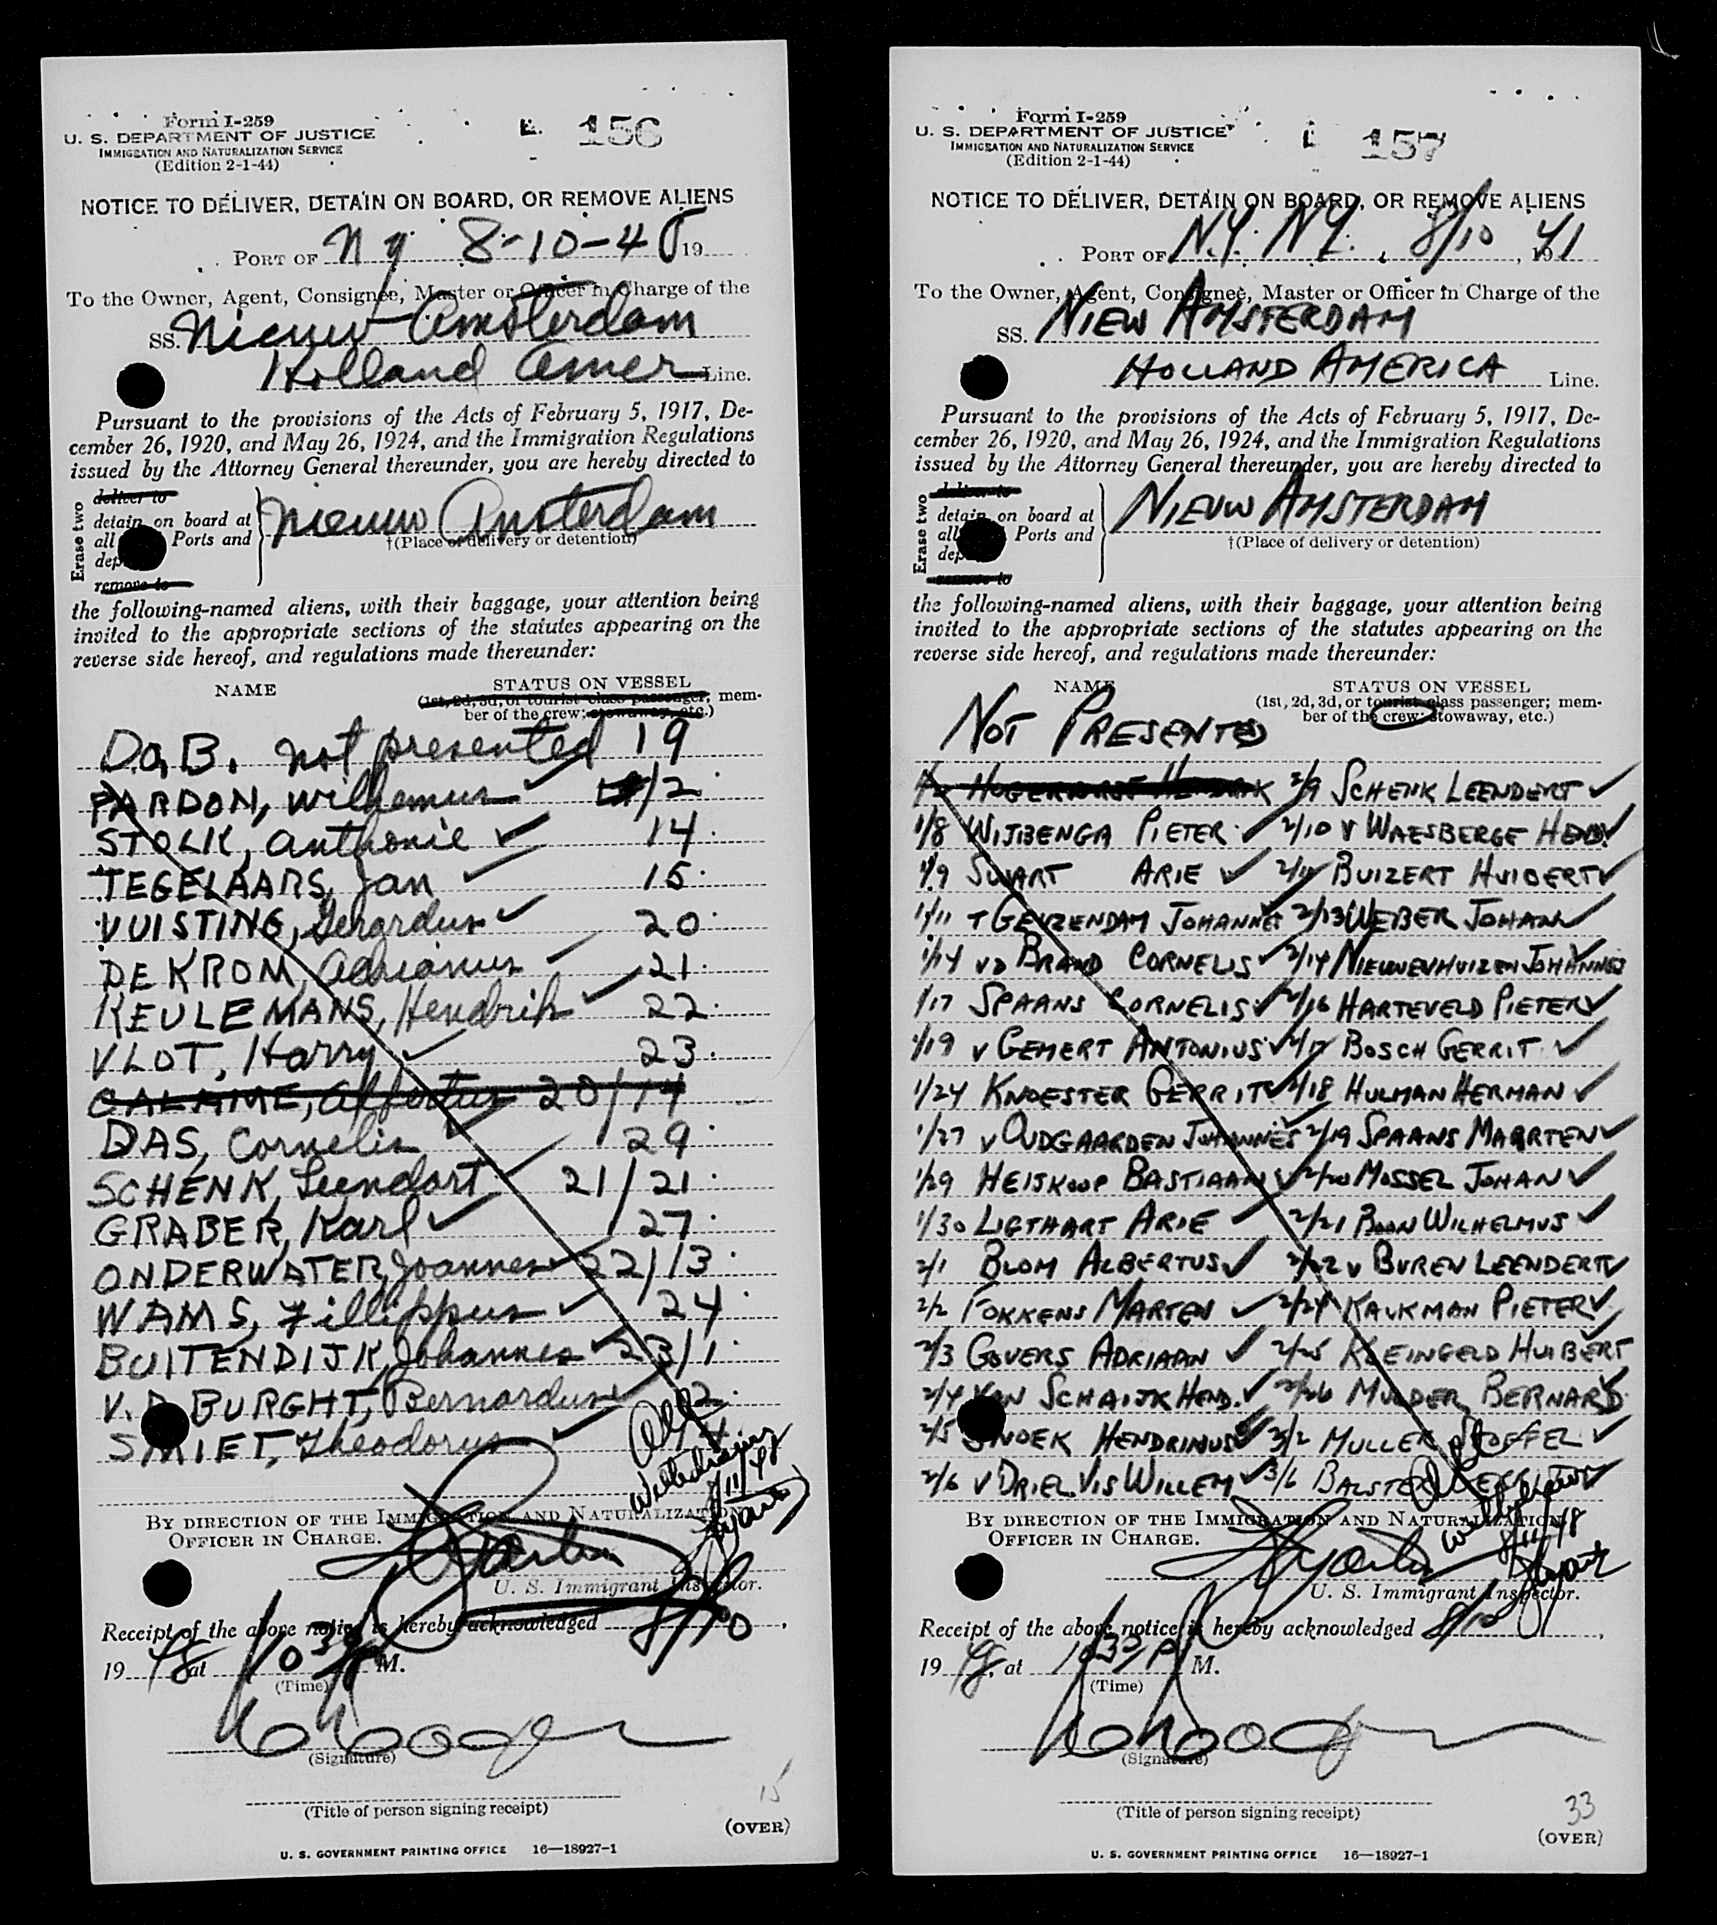 Form I-259
U. S. DEPARTMENT OF JUSTICE
IMMIGRATION AND NATURALIZATION SERVICE
(Edition 2-1-44)
E. 156
NOTICE TO DELIVER, DETAIN ON BOARD, OR REMOVE ALIENS
PORT OF N y 8-10-48 19
To the Owner, Agent, Consignee, Master or Officer in Charge of the
SS. Nieuw Amsterdam
Holland Amer Line.
Pursuant to the provisions of the Acts of February 5, 1917, De-
cember 26, 1920, and May 26, 1924, and the Immigration Regulations
issued by the Attorney General thereunder, you are hereby directed to
Erase two
deliver to
detain on board at
all Ports and
remove to
Nieuw Amsterdam
†(Place of delivery or detention)
the following-named aliens, with their baggage, your attention being
invited to the appropriate sections of the statutes appearing on the
reverse side hereof, and regulations made thereunder:
NAME STATUS ON VESSEL
(1st, 2d, 3d, or tourist class passenger; mem-
ber of the crew; stowaway, etc.)
D.O.B. not presented 19
PARDON, Wilhemus ✓ /12
STOLK, Anthonie ✓ 14
TEGELAARS, Jan ✓ 15
VUISTING, Gerardus ✓ 20
DE KROM, Adrianus ✓ 21
KEULEMANS, Hendrik ✓ 22
VLOT, Harry ✓ 23
CALAME, Albertus 20/14
DAS, Cornelis ✓ 29
SCHENK, Leendart ✓ 21/21
GRABER, Karl ✓ 27
ONDERWATER, Joannes ✓ 22/13
WAMS, Fillippus ✓ 24
BUITENDIJK, Johannes ✓ 23/1
V. D. BURGHT, Bernardus ✓ 2
SMIET, Theodorus ✓
All
Withdrawn
8/11/48
BY DIRECTION OF THE IMMIGRATION AND NATURALIZATION
OFFICER IN CHARGE.
U. S. Immigrant Inspector.
Receipt of the above notice is hereby acknowledged 8/10,
1948 at 10 30 P M.
(Time)
(Signature)
15
(Title of person signing receipt)
(OVER)
U. S. GOVERNMENT PRINTING OFFICE 16—18927-1
Form I-259
U. S. DEPARTMENT OF JUSTICE
IMMIGRATION AND NATURALIZATION SERVICE
(Edition 2-1-44)
157
NOTICE TO DELIVER, DETAIN ON BOARD, OR REMOVE ALIENS
PORT OF N.Y. NY. , 8/10 , 19
To the Owner, Agent, Consignee, Master or Officer in Charge of the
SS. NIEW AMSTERDAM
HOLLAND AMERICA Line.
Pursuant to the provisions of the Acts of February 5, 1917, De-
cember 26, 1920, and May 26, 1924, and the Immigration Regulations
issued by the Attorney General thereunder, you are hereby directed to
Erase two
deliver to
detain on board at
all Ports and
remove to
NIEUW AMSTERDAM
†(Place of delivery or detention)
the following-named aliens, with their baggage, your attention being
invited to the appropriate sections of the statutes appearing on the
reverse side hereof, and regulations made thereunder:
NAME STATUS ON VESSEL
(1st, 2d, 3d, or tourist class passenger; mem-
ber of the crew; stowaway, etc.)
NOT PRESENTED
2/9 SCHENK LEENDERT ✓
1/8 WIJBENGA PIETER ✓ 2/10 V WAESBERGE HEND. ✓
1/9 SWART ARIE ✓ 2/11 BUIZERT HUIBERT ✓
1/11 T GEYZENDAM JOHANNES ✓ 2/13 WEBER JOHAN ✓
1/14 VD BRAND CORNELIS ✓ 2/14 NIEUWENHUIZEN JOHANNES ✓
1/17 SPAANS CORNELIS ✓ 2/16 HARTEVELD PIETER ✓
1/19 V GEMERT ANTONIUS ✓ 2/17 BOSCH GERRIT ✓
1/24 KNOESTER GERRIT ✓ 2/18 HULMAN HERMAN ✓
1/27 V OUDGAARDEN JOHANNES ✓ 2/19 SPAANS MAARTEN ✓
1/29 HEIJKOOP BASTIAAN ✓ 2/20 MOSSEL JOHAN ✓
1/30 LIGTHART ARIE ✓ 2/21 BOON WILHELMUS ✓
2/1 BLOM ALBERTUS ✓ 2/22 V BUREN LEENDERT ✓
2/2 FOKKENS MARTEN ✓ 2/24 KALKMAN PIETER ✓
2/3 GOVERS ADRIAAN ✓ 2/25 KLEINGELD HUIBERT ✓
2/4 VAN SCHAIJK HEND. ✓ 2/26 MULDER BERNARD ✓
2/5 SNOEK HENDRINUS ✓ 3/2 MULLER STOFFEL ✓
2/6 V DRIEL VIS WILLEM ✓ 3/6 BALSTER ✓
All
Withdrawn
8/11/48
BY DIRECTION OF THE IMMIGRATION AND NATURALIZATION
OFFICER IN CHARGE.
U. S. Immigrant Inspector.
Receipt of the above notice is hereby acknowledged 8/10,
1948, at 10 30 P M.
(Time)
(Signature)
33
(Title of person signing receipt)
(OVER)
U. S. GOVERNMENT PRINTING OFFICE 16—18927-1